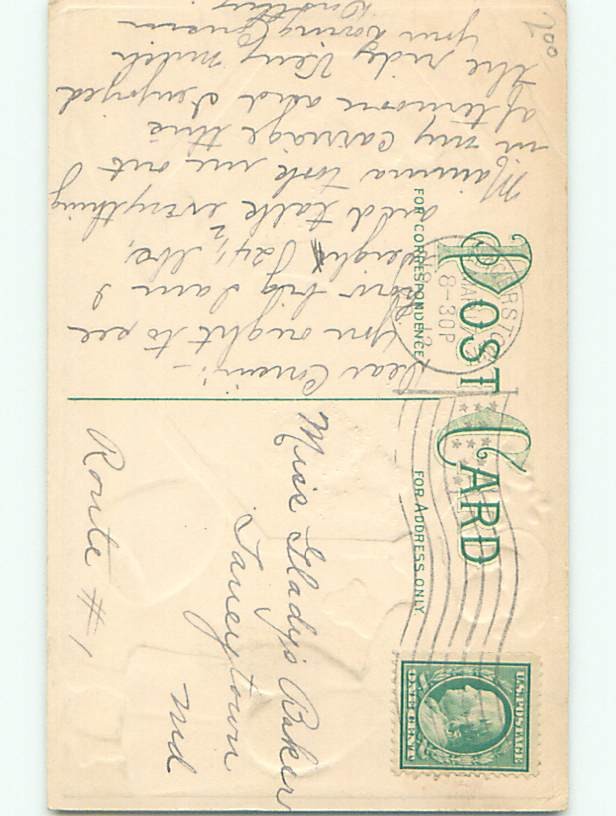 POST CARD
FOR CORRESPONDENCE
FOR ADDRESS ONLY
8-30P
U.S. POSTAGE
ONE CENT
Dear Cousin:-
You ought to see
how big I am I
weigh 24 1/2 lbs,
and talk everything
Mamma took me out
in my carriage this
afternoon and I enjoyed
the ride very much
Your loving Cousin
Miss Gladys Baker
Taneytown
Md
Route #1
200